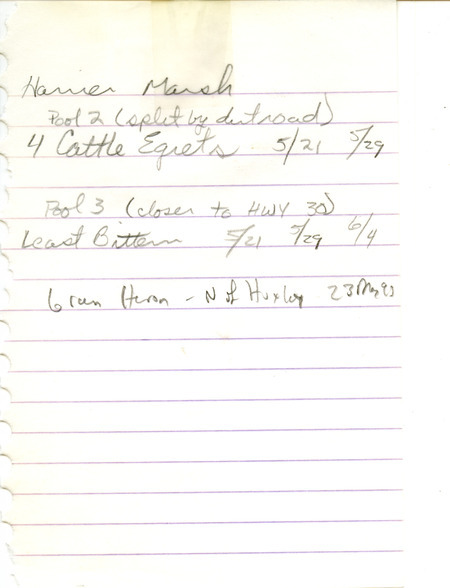 Harrier Marsh
Pool 2 (split by dirt road)
4 Cattle Egrets 5/21 5/29
Pool 3 (closer to HWY 30)
Least Bittern 5/21 5/29 6/4
Green Heron - N of Huxley 23 May 93